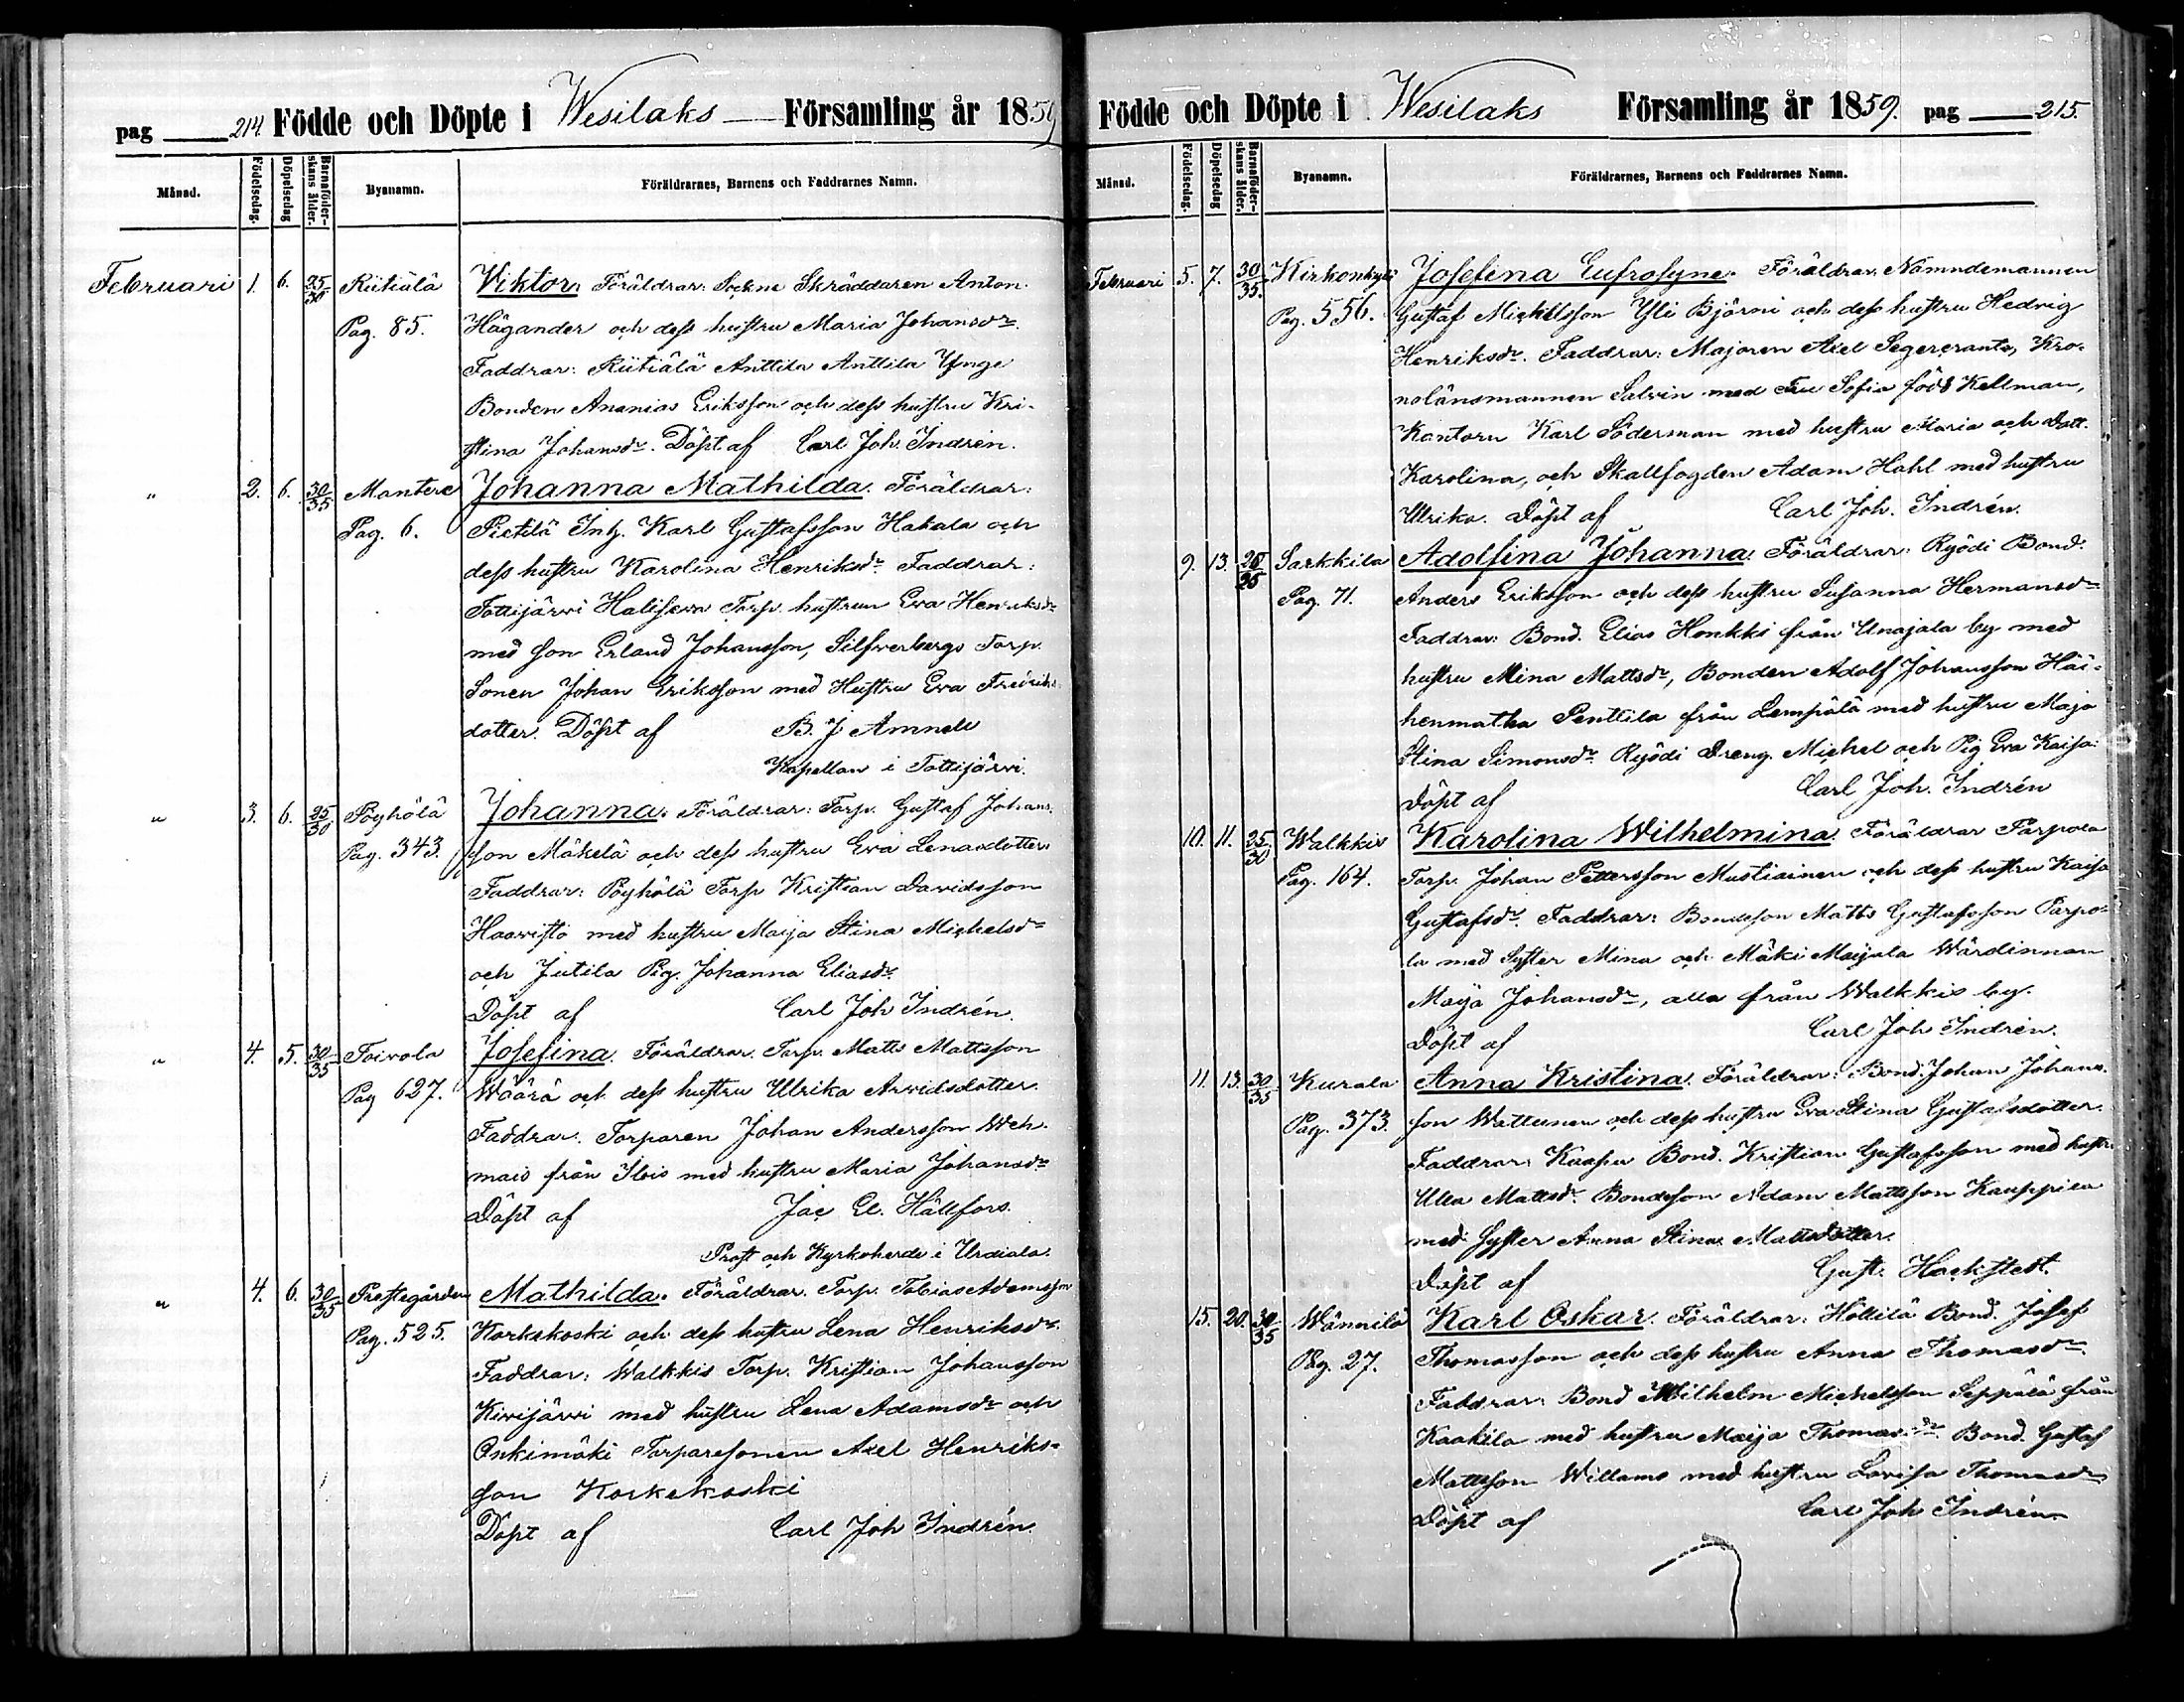 pag 214. Födde och Döpte i Wesilaks Församling år 1859
Månad. Födelsedag. Döpelsedag Barnaföderskans ålder. Byanamn. Föräldrarnes, Barnens och Faddrarnes Namn.
Februari 1. 6. 25/30 Riitiälä Viktor. Föräldrar: Sockne Skräddaren Anton
Pag. 85. Hägander och dess hustru Maria Johansdr.
Faddrar: Riitiälä Anttila Anttila Ynge
Bonden Ananias Eriksson och dess hustru Kri-
stina Johansdr. Döpt af Carl Joh. Indrén.
" 2. 6. 30/35 Mantere Johanna Mathilda. Föräldrar:
Pag. 6. Pietilä Inh. Karl Gustafsson Hakala och
dess hustru Karolina Henriksdr. Faddrar:
Tottijärvi Halisewa Torp. hustrun Eva Henriksdr
med son Erland Johansson, Silfverbergs Torp.
Sonen Johan Eriksson med Hustru Eva Fredriks
dotter. Döpt af B. J Amnell
Kapellan i Tottijärvi.
" 3. 6. 25/30 Pöyhölä Johanna. Föräldrar: Torp. Gustaf Johans.
Pag. 343. son Mäkelä och dess hustru Eva Lenasdotter
Faddrar: Pöyhölä Torp Kristian Davidsson
Haavisto med hustru Maija Stina Michelsdr
och Jutila Pig. Johanna Eliasdr.
Döpt af Carl Joh Indrén.
" 4. 5. 30/35 Toivola Josefina. Föräldrar. Torp. Matts Mattsson
Pag 627. Wäärä och dess hustru Ulrika Arvidsdotter.
Faddrar. Torparen Johan Andersson Weh-
mais från Ilois med hustru Maria Johansdr
Döpt af Jac El. Hällfors.
Prost och Kyrkoherde i Urdiala.
" 4. 6. 30/35 Prestegården Mathilda. Föräldrar. Torp. Tobias Adamsson
Pag. 525. Korkekoski och dess hustru Lena Henriksdr.
Faddrar: Walkkis Torp. Kristian Johansson
Kivijärvi med hustru Lena Adamsdr och
Onkimäki Torparesonen Axel Henriks-
son Korkekoski
Döpt af Carl Joh Indrén
Födde och Döpte i Wesilaks Församling år 1859. pag 215.
Månad. Födelsedag. Döpelsedag Barnaföderskans ålder. Byanamn. Föräldrarnes, Barnens och Faddrarnes Namn.
Februari 5. 7. 30/35. Kirkonkylä Josefina Eufrosyne. Föräldrar. Nämndemannen
Pag. 556. Gustaf Michelsson Yli Björni och dess hustru Hedvig
Henriksdr. Faddrar: Majoren Axel Segercrantz, Kro-
nolänsmannen Salvin med Fru Sofia född Kellman,
Kantorn Karl Söderman med hustru Maria och Dott.
Karolina, och Skallfogden Adam Hahl med hustru
Ulrika. Döpt af Carl Joh. Indrén.
9. 13. 20/25 Sarkkila Adolfina Johanna. Föräldrar: Ryödi Bond.
Pag. 71. Anders Eriksson och dess hustru Susanna Hermansdr
Faddrar: Bond. Elias Honkki från Unajala by med
hustru Mina Mattsdr, Bonden Adolf Johansson Häi-
henmatka Penttila från Lempälä med hustru Maja
Stina Simonsdr. Ryödi Dreng. Michel och Pig Eva Kaisa.
Döpt af Carl Joh. Indrén
10. 11. 25/30 Walkkis Karolina Wilhelmina. Föräldrar Parpola
Pag. 164. Torp. Johan Pettersson Mustiainen och dess hustru Kaisa
Gustafsdr. Faddrar: Bondeson Matts Gustafsson Parpo-
la med Syster Mina och Mäki Maijala Wärdinnan
Maija Johansdr, alla från Walkkis by.
Döpt af Carl Joh Indrén.
11. 13. 30/35 Kurala Anna Kristina. Föräldrar: Bond Johan Johans-
Pag. 373. son Wattunen och dess hustru Eva Stina Gustafsdotter.
Faddrar: Kaasu Bond. Kristian Gustafsson med hustru
Ulla Mattsdr. Bondeson Adam Mattsson Kauppila
med Syster Anna Stina Mattsdotter.
Döpt af Gust. Hackstedt.
15. 20. 30/35 Wännilä Karl Oskar. Föräldrar: Hollilä Bond. Josef
Pag. 27. Thomasson och dess hustru Anna Thomasdr
Faddrar: Bond Wilhelm Michelsson Seppälä från
Kaakila med hustru Maija Thomasdr. Bond. Gustaf
Mattsson Willamo med hustru Lovisa Thomasdr
Döpt af Carl Joh Indrén